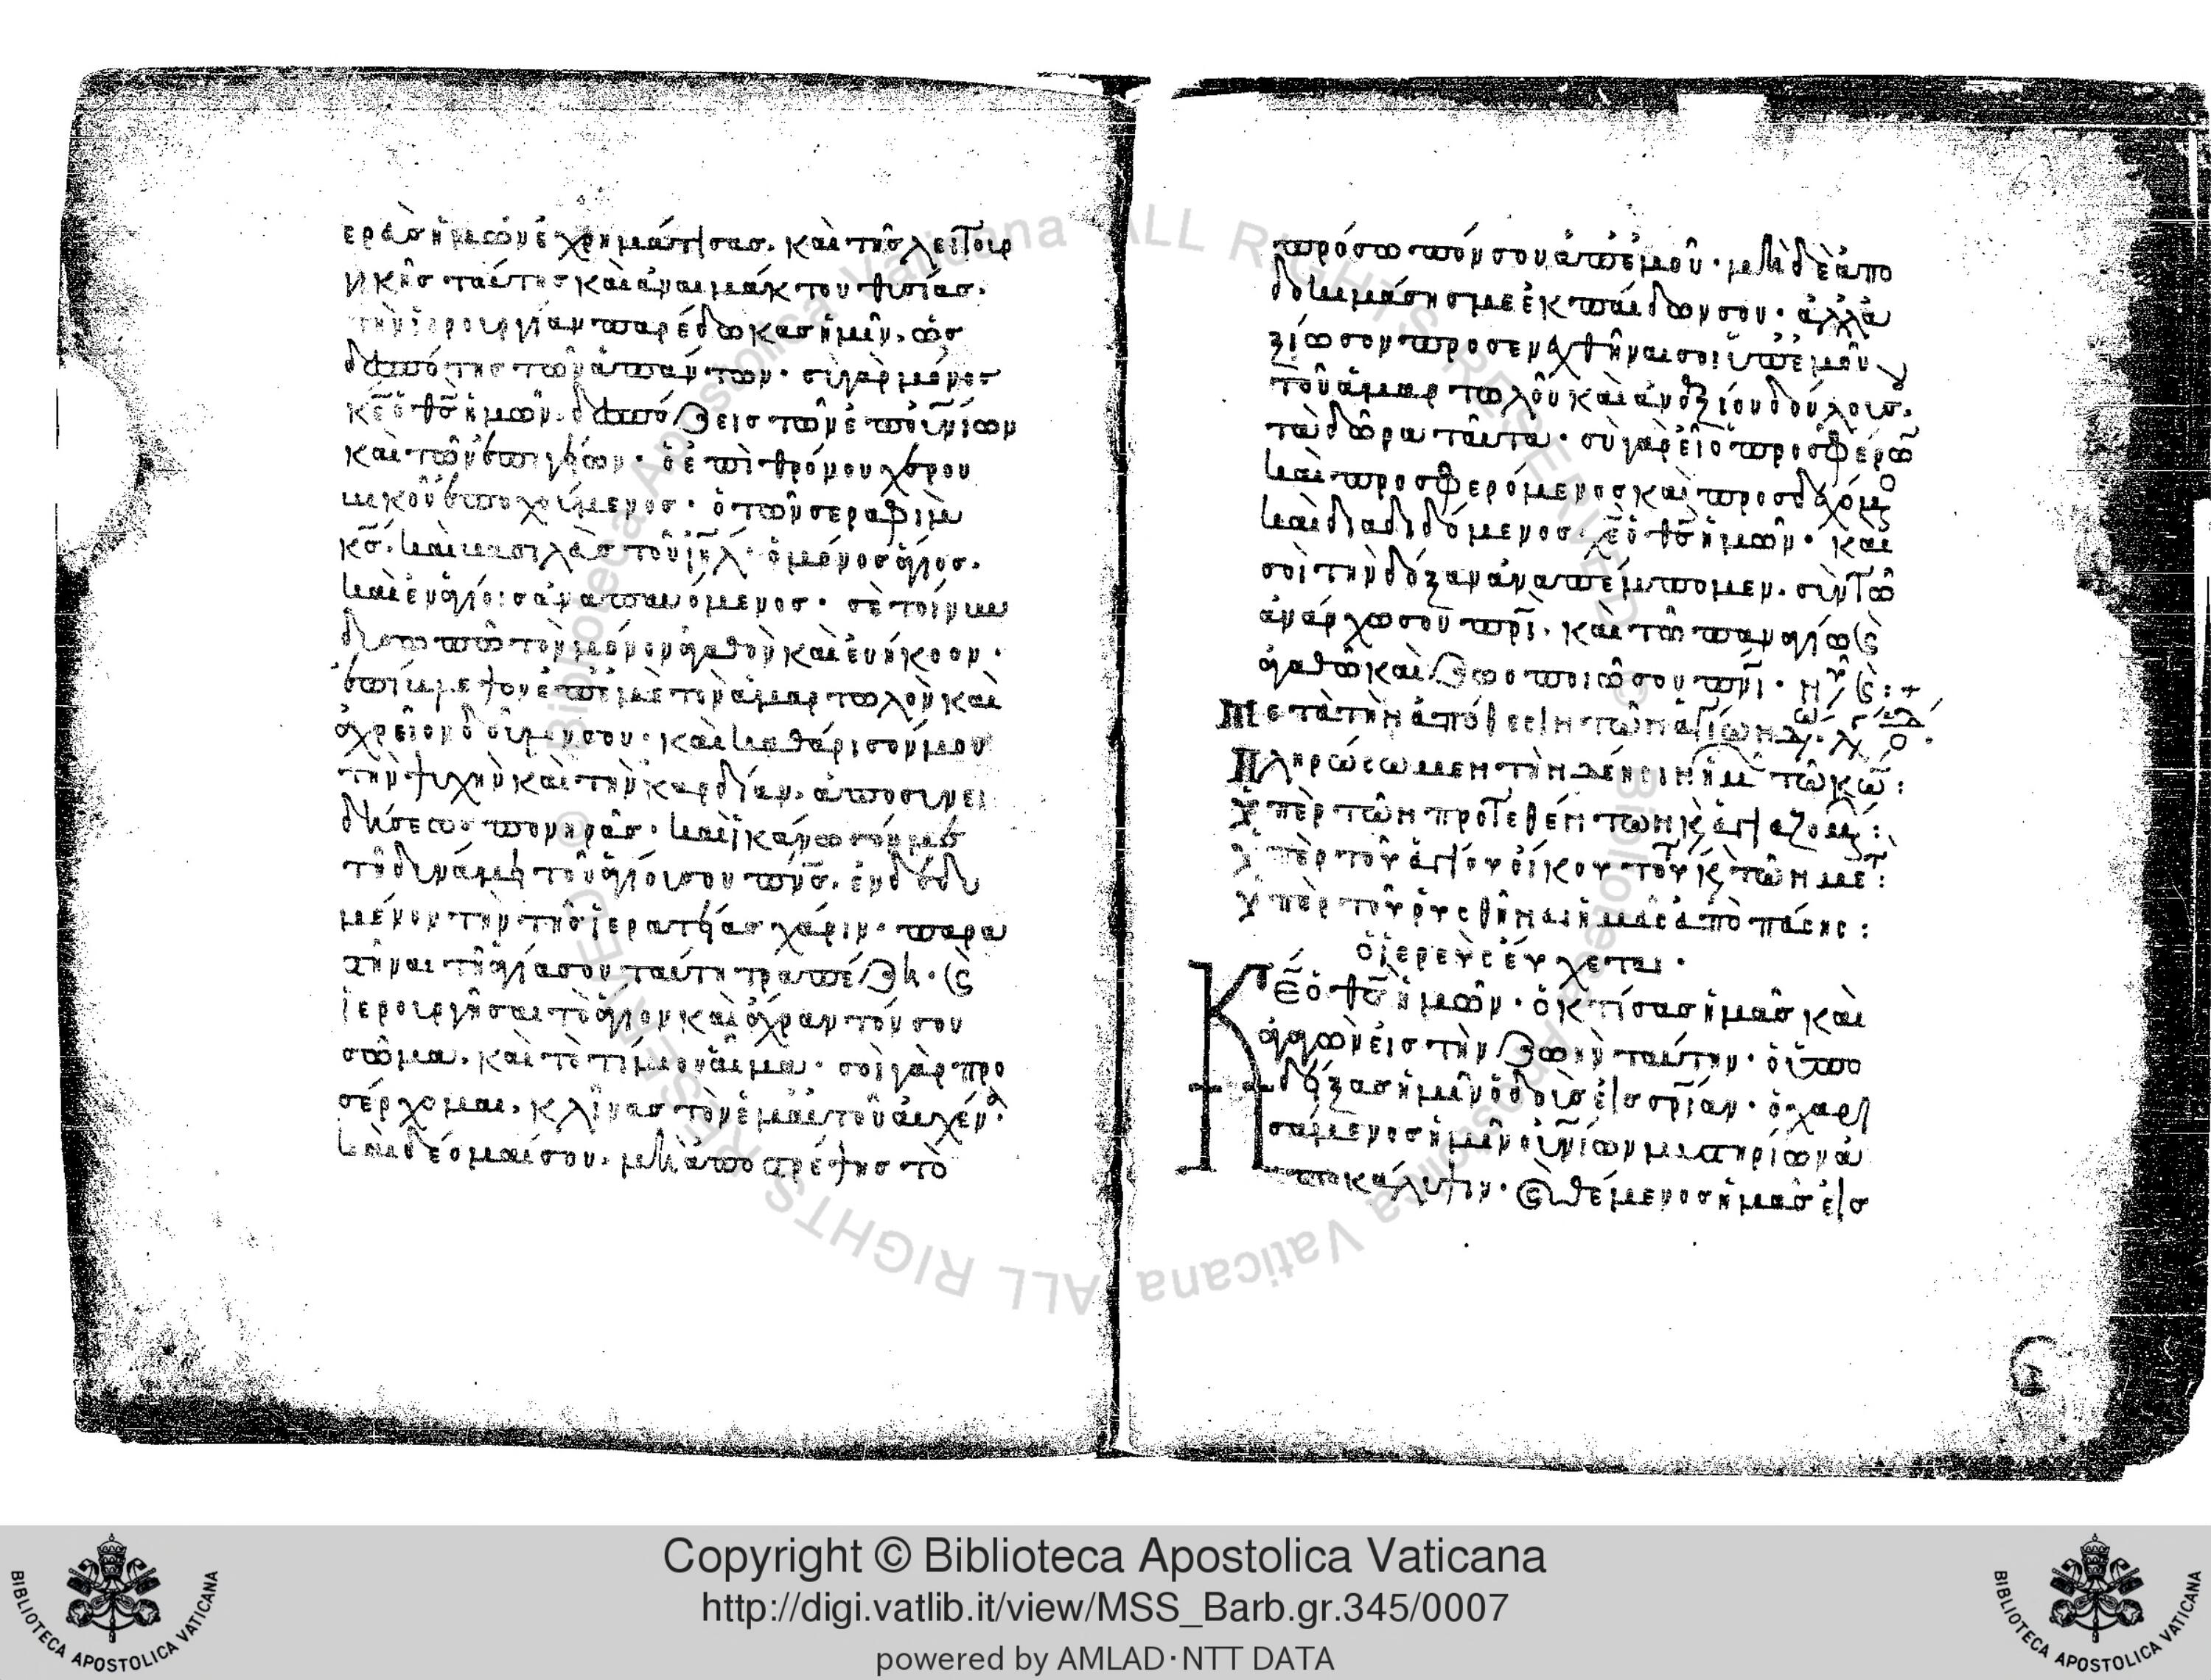 ερεὺς ἡμῶν ἐχρημάτισας. καὶ τῆς λειτουρ
γικῆς ταύτης καὶ ἀναιμάκτου θυσίας.
τὴν ἱερουργίαν παρέδωκας ἡμῖν. ὡς
δεσπότης τῶν ἁπάντων. σὺ γὰρ μόνος
κε ὁ θς ἡμῶν. δεσπόζεις τῶν ἐπουνίων
καὶ τῶν ἐπιγείων. ὁ ἐπὶ θρόνου χερου
βικοῦ ἐποχούμενος. ὁ τῶν σεραφὶμ
κς. καὶ βασιλεὺς τοῦ ιηλ. ὁ μόνος ἅγιος.
καὶ ἐν ἁγίοις ἀναπαυόμενος. σὲ τοίνυν
δυσωπῶ τὸν μόνον ἀγαθὸν καὶ εὐήκοον.
ἐπίβλεψον ἐπ' ἐμὲ τὸν ἁμαρτωλὸν καὶ
ἀχρεῖον δοῦλον σου. καὶ καθάρισόν μου
τὴν ψυχὴν καὶ τὴν καρδίαν. ἀπὸ συνει
δήσεως πονηρᾶς. καὶ ἱκάνωσόν με
τῇ δυνάμει τοῦ ἁγίου σου πνς. ἐνδεδυ
μένον τὴν τῆς ἱερατείας χάριν. παρα
στῆναι τῇ ἁγίᾳ σου ταύτῃ τραπέζῃ. καὶ
ἱερουργῆσαι τὸ ἅγιον καὶ ἄχραντόν σου
σῶμα. καὶ τὸ τίμιον αἷμα. σοὶ γὰρ προ
σέρχομαι. κλίνας τὸν ἐμαυτοῦ αὐχένα.
καὶ δέομαί σου. μὴ ἀποστρέψῃς τὸ
πρόσωπόν σου ἀπ' ἐμοῦ. μὴ δὲ ἀπο
δοκιμάσῃς με ἐκ παίδων σου. ἀλλὰ
ξίωσον προσενεχθῆναι σοι ὑπ' ἐμοῦ
τοῦ ἁμαρτωλοῦ καὶ ἀναξίου δούλου σου.
τὰ δῶρα ταῦτα. σὺ γὰρ εἶ ὁ προσφέρων
καὶ προσφερόμενος καὶ προσδεχόμενος
καὶ διαδιδόμενος χε ὁ θς ἡμῶν. καὶ
σοὶ τὴν δόξαν ἀναπέμπομεν. σὺν τῷ
ἀνάρχῳ σου πρι. καὶ τῷ παναγίῳ καὶ
ἀγαθῷ καὶ ζωοποιῷ σου πνι. νῦν καὶ
Μετὰ τὴν ἀπόθεσιν τῶν ἁγίων δώρων λέγει ὁ διά
Πληρώσωμεν τὴν δέησιν ἡμ τῷ κω:
Ὑπὲρ τῶν προτεθέντων καὶ ἁγιαζομ:
Ὑπὲρ τοῦ ἁγίου οἴκου τούτου καὶ τῶν μετ:
Ὑπὲρ τοῦ ῥυσθῆναι ἡμᾶς ἀπὸ πάσης:
ὁ ἱερεὺς εὔχεται.
Κε ὁ θς ἡμῶν. ὁ κτίσας ἡμᾶς καὶ
ἀγαγὼν εἰς τὴν ζωὴν ταύτην. ὁ ὑπο
δείξας ἡμῖν ὁδοὺς εἰς σριαν. ὁ χαρι
σάμενος ἡμῖν οὐνίων μυστηρίων ἀ
ποκάλυψιν. σὺ εἶ ὁ θέμενος ἡμᾶς εἰς
Copyright © Biblioteca Apostolica Vaticana
http://digi.vatlib.it/view/MSS_Barb.gr.345/0007
powered by AMLAD·NTT DATA
BIBLIOTECA APOSTOLICA VATICANA
BIBLIOTECA APOSTOLICA VATICANA